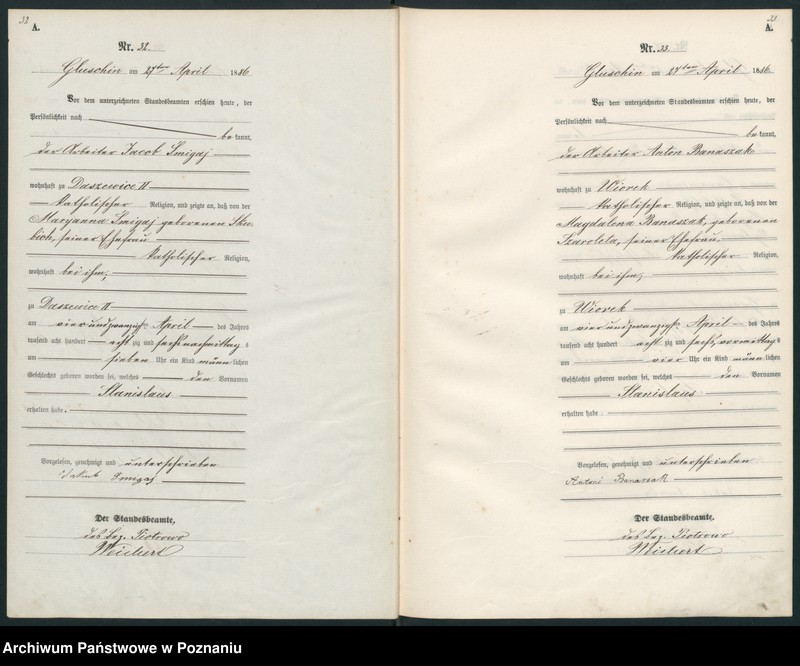 32
A.
Nr. 32.
Gluschin am 27ten April 1886
Vor dem unterzeichneten Standesbeamten erschien heute, der
Persönlichkeit nach
be kannt,
der Arbeiter Jacob Smigaj
wohnhaft zu Daszewice II
katholischer Religion, und zeigte an, daß von der
Maryanna Smigaj geborenen Sku-
bich, seiner Ehefrau
katholischer Religion,
wohnhaft bei ihm,
zu Daszewice II
am vierundzwanzigst. April des Jahres
tausend acht hundert achtzig und sechs nachmittag s
um sieben Uhr ein Kind männlichen
Geschlechts geboren worden sei, welches den Vornamen
Stanislaus
erhalten habe.
Vorgelesen, genehmigt und unterschrieben
Jakub Smigaj
Der Standesbeamte,
des Bez. Piotrowo
Weichert
33
A.
Nr. 33.
Gluschin am 27ten April 1886
Vor dem unterzeichneten Standesbeamten erschien heute, der
Persönlichkeit nach
be kannt,
der Arbeiter Anton Banaszak
wohnhaft zu Wiorek
katholischer Religion, und zeigte an, daß von der
Magdalena Banaszak, geborenen
seiner Ehefrau,
katholischer Religion,
wohnhaft bei ihm,
zu Wiorek
am vierundzwanzigst. April des Jahres
tausend acht hundert achtzig und sechs vormittag s
um vier Uhr ein Kind männlichen
Geschlechts geboren worden sei, welches den Vornamen
Stanislaus
erhalten habe
Vorgelesen, genehmigt und unterschrieben
Antoni Banaszak
Der Standesbeamte.
des Bez. Piotrowo
Weichert
Archiwum Państwowe w Poznaniu